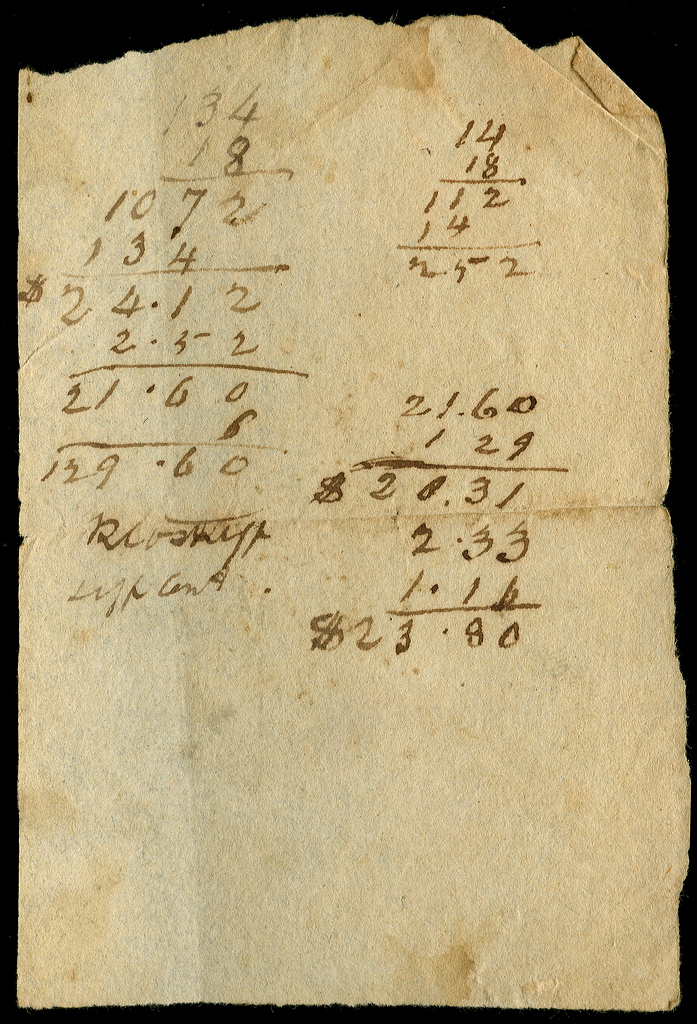 134
18
1072
134
$ 24.12
2.52
21.60
6
129.60
14
18
112
14
252
21.60
1 29
$ 20.31
2.33
1.16
$ 23.80